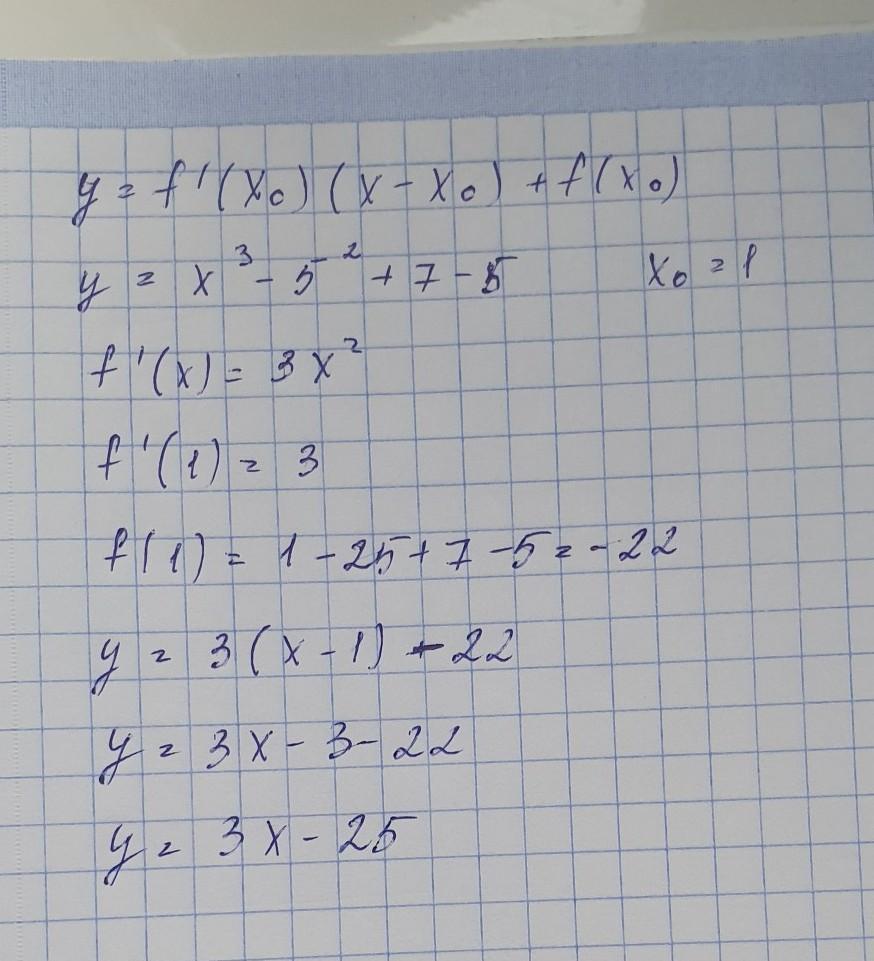 y = f'(x₀)(x - x₀) + f(x₀)
y = x³ - 5² + 7 - 5 x₀ = 1
f'(x) = 3x²
f'(1) = 3
f(1) = 1 - 25 + 7 - 5 = -22
y = 3(x - 1) - 22
y = 3x - 3 - 22
y = 3x - 25